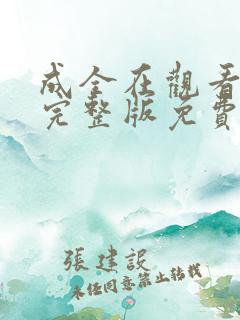 成全在觀看
完整版免費
張建設
未经同意禁止转载